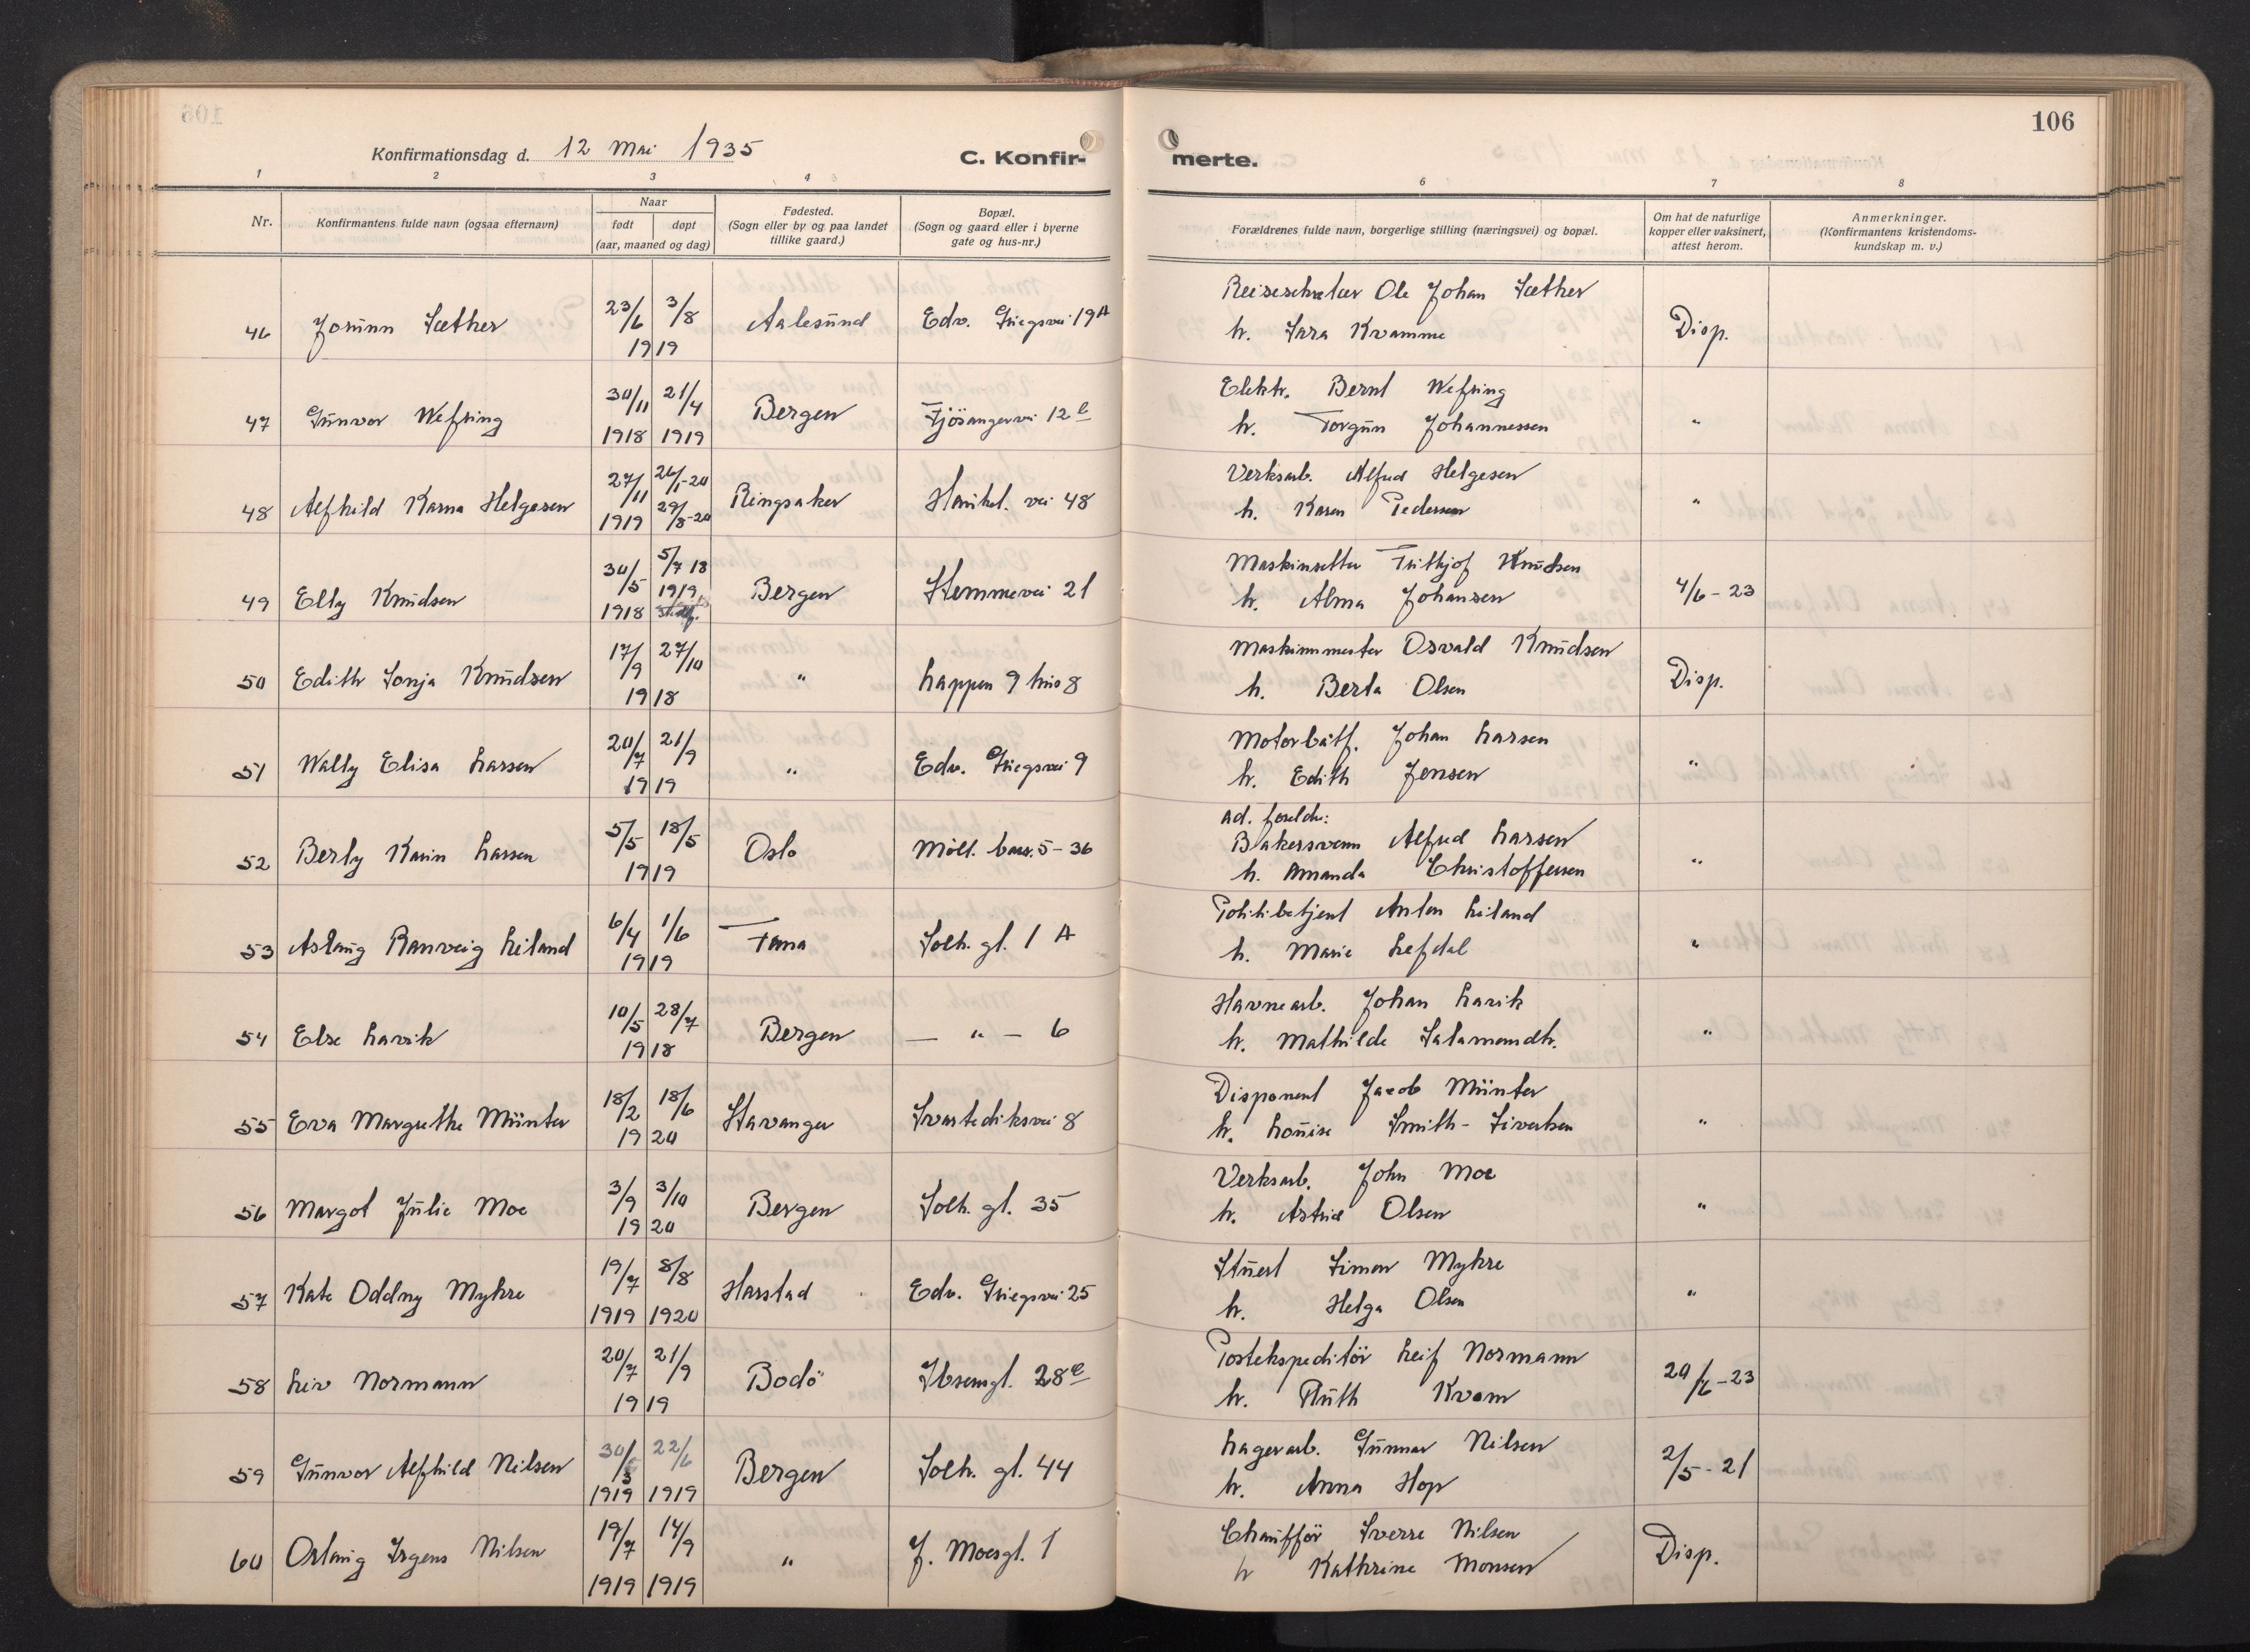 106
Konfirmationsdag d. 12 Mai 1935
C. Konfir- merte.
1 2 3 4 6 7 8
Nr.
Konfirmantens fulde navn (ogsaa efternavn)
Naar
født døpt
(aar, maaned og dag)
Fødested.
(Sogn eller by og paa landet
tillike gaard.)
Bopæl.
(Sogn og gaard eller i byerne
gate og hus-nr.)
Forældrenes fulde navn, borgerlige stilling (næringsvei) og bopæl.
Om hat de naturlige
kopper eller vaksinert,
attest herom.
Anmerkninger.
(Konfirmantens kristendoms-
kundskap m. v.)
Reisesekretær Ole Johan Sæther
46 Jorunn Sæther 23/6 3/8 1919 Aalesund Edv. Griegsvei 19A
h. Sara Kvamme Disp.
Elektr. Bernt Wefring
47 Gunvor Wefring 30/11 1918 21/4 1919 Bergen Fjösangervei 12c
h. Torgun Johannessen "
Verksarb. Alfred Helgesen
48 Alfhild Karna Helgesen 27/11 1919 26/1-20 29/8-20 Ringsaker Haukel. vei 48
h. Karen Pedersen "
Maskinsetter Frithjof Knudsen
49 Elly Knudsen 30/5 1918 5/7 18 1919 Bergen Stemmevei 21
h. Alma Johansen 4/6-23
Maskinmester Osvald Knudsen
50 Edith Sonja Knudsen 17/9 27/10 1918 " Lappen 9 hus 8
h. Berta Olsen Disp.
Motorbåtf. Johan Larsen
51 Wally Elisa Larsen 20/7 21/9 1919 " Edv. Griegsvei 9
h. Edith Jensen "
ad. foreldre:
Bakersvenn Alfred Larsen
52 Berly Karin Larsen 5/5 18/5 1919 Oslo Möll. bakk. 5-36
h. Amanda Christoffersen "
Politibetjent Anton Liland
53 Aslaug Ranveig Liland 6/4 1/6 1919 Fana Solh. gt. 1 A
h. Marie Lefdal "
Havnearb. Johan Larik
54 Else Larik 10/5 28/7 1918 Bergen — " — 6
h. Mathilde Salamondh. "
Disponent Jacob Münter
55 Eva Margrethe Münter 18/2 18/6 1920 Stavanger Svartediksvei 8
h. Louise Smith-Sivertsen "
Verksarb. John Moe
56 Margot Julie Moe 3/9 3/10 1920 Bergen Solh. gt. 35
h. Astrid Olsen "
Stuert Simon Myhre
57 Kate Oddny Myhre 19/7 1919 8/8 1920 Harstad Edv. Griegsvei 25
h. Helga Olsen "
Postekspeditör Leif Normann
58 Liv Normann 20/7 21/9 1919 Bodö Ibsensgt. 28c
h. Ruth Kvam 20/6-23
Lagerarb. Gunnar Nilsen
59 Gunvor Alfhild Nilsen 30/3 1919 22/6 1919 Bergen Solh. gt. 44
h. Anna Hop 2/5-21
Chaufför Sverre Nilsen
60 Oslaug Irgens Nilsen 19/7 1919 14/9 1919 " J. Moesgt. 1
h Kathrine Monsen Disp.